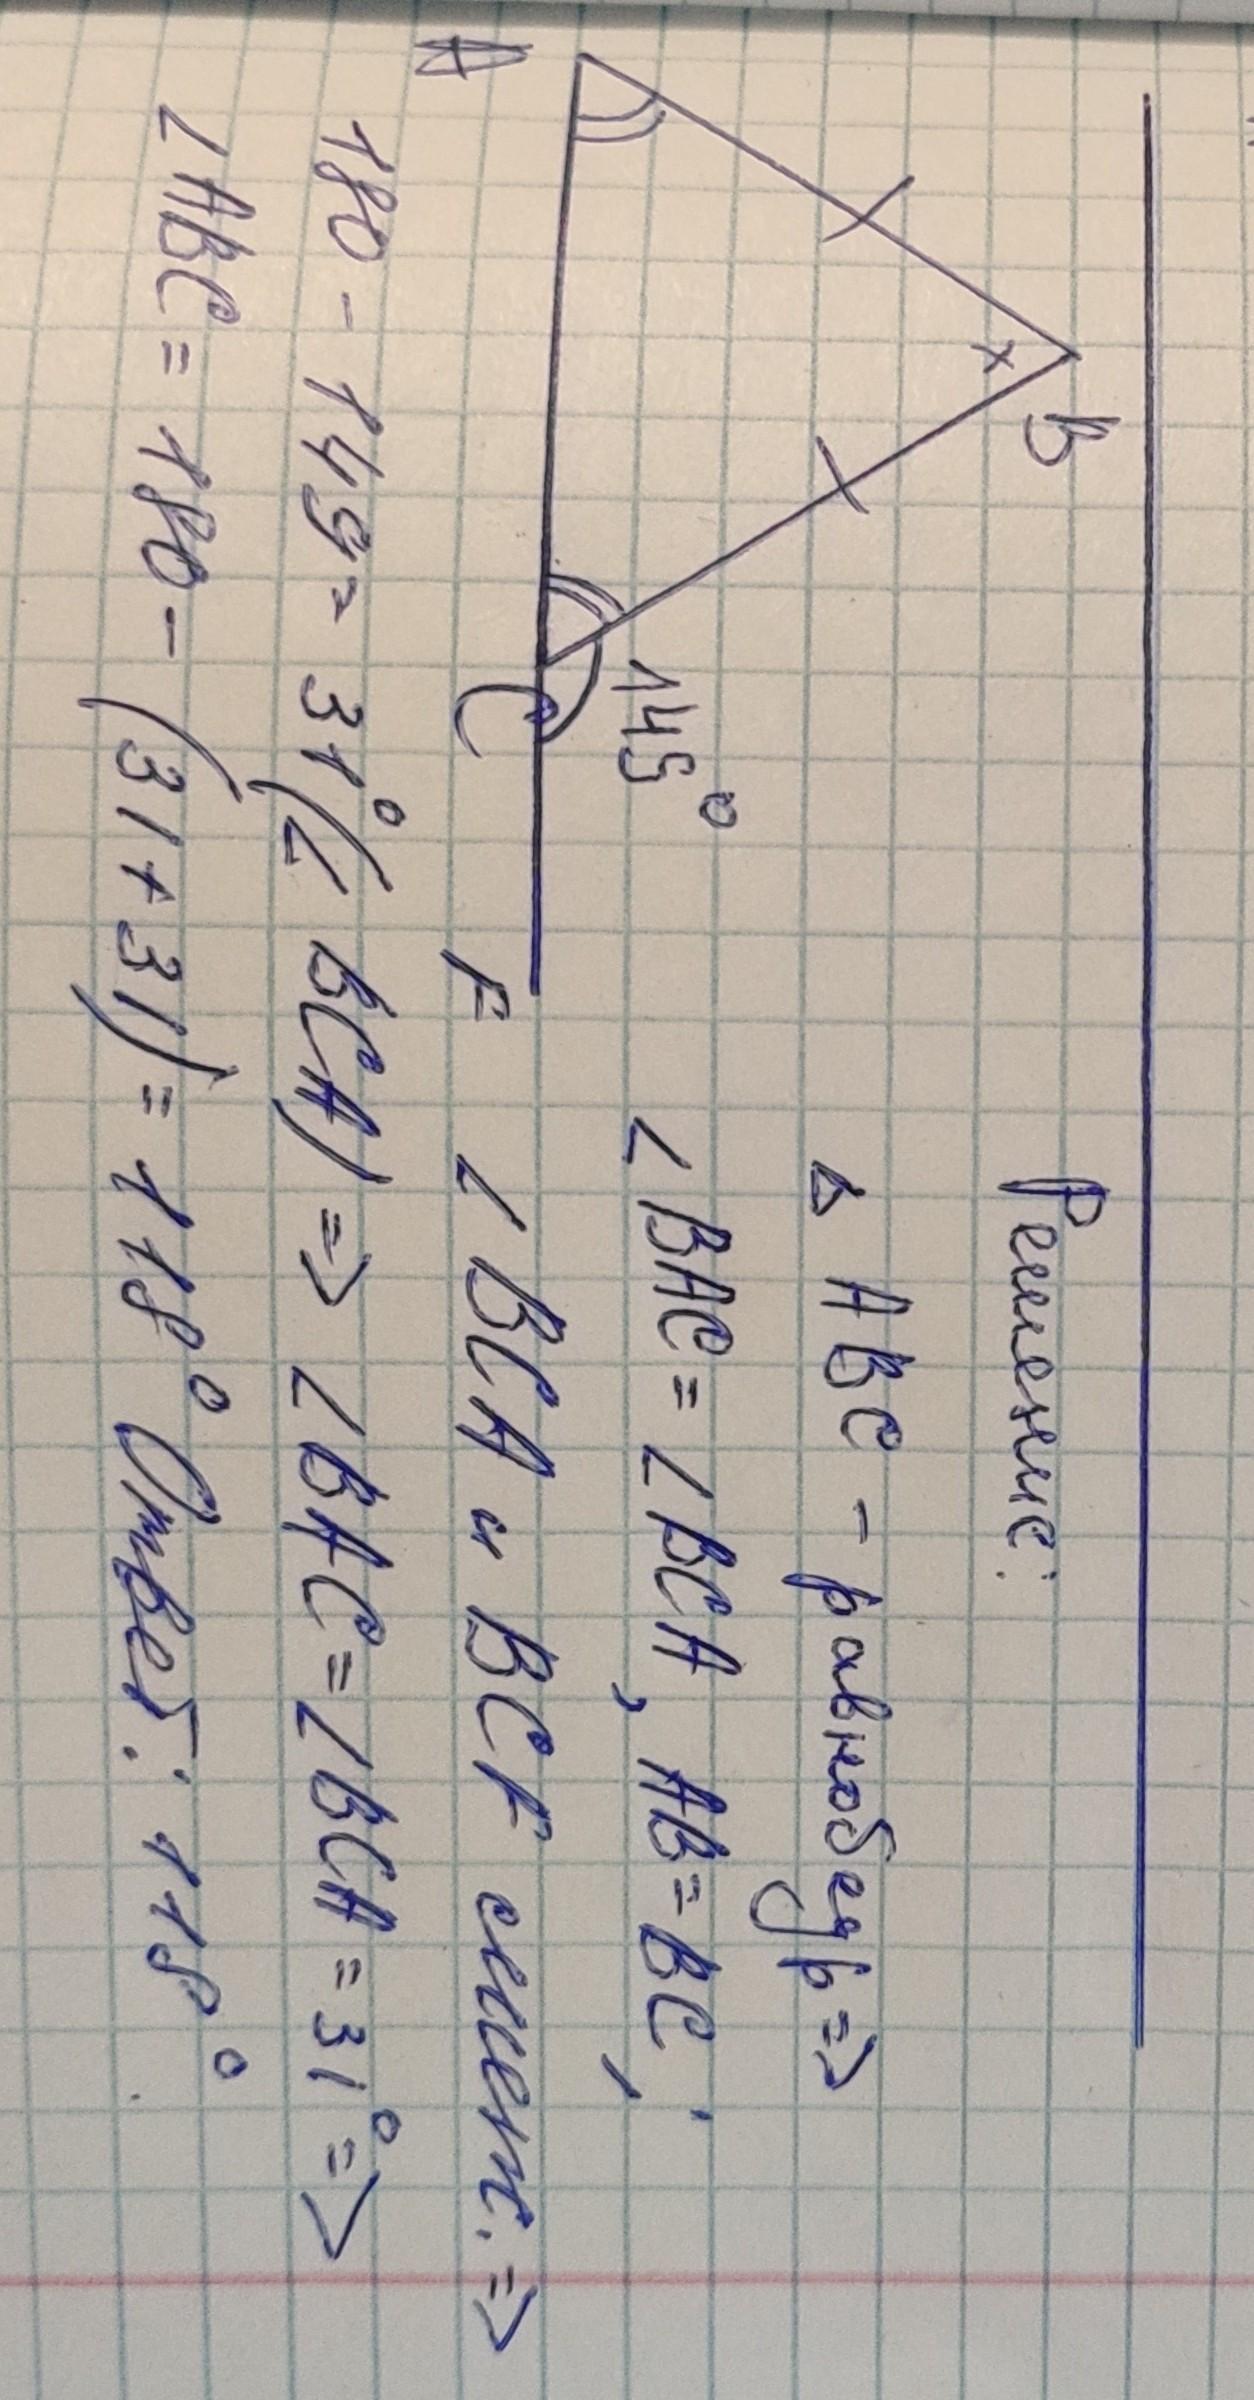 Решение:
B
△ ABC – равнобедр =>
145°
∠BAC = ∠BCA, AB = BC,
A
C
F
∠BCA и BCF смеж. =>
180 - 149 = 31° (∠BCA) => ∠BAC = ∠BCA = 31° =>
∠ABC = 180 - (31+31) = 118° Ответ: 118°